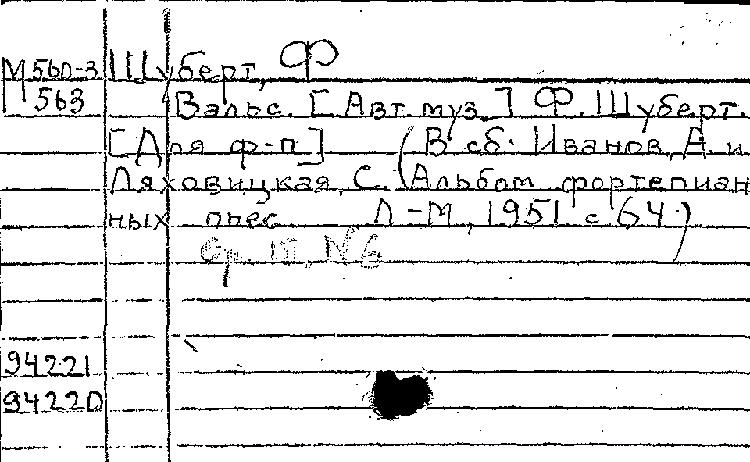 М560-3 Шуберт, Ф
563 Вальс. [Авт. муз.] Ф. Шуберт.
[Для ф-п] (В сб. Иванов, А. и
Ляховицкая, С. Альбом фортепиан
ных пьес Л-М, 1951 с 64)
Ср. III, № 6
94221
94220